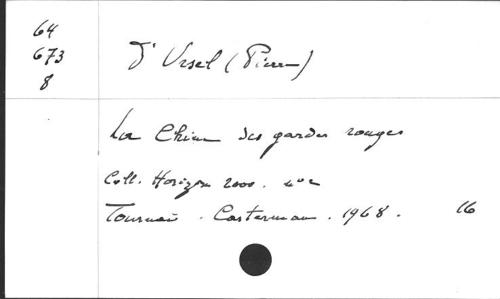 64
673
8
D'Ursel (Pierre)
La Chine des gardes rouges
Coll. Horizon 2000.
Tournai. Casterman. 1968. 16